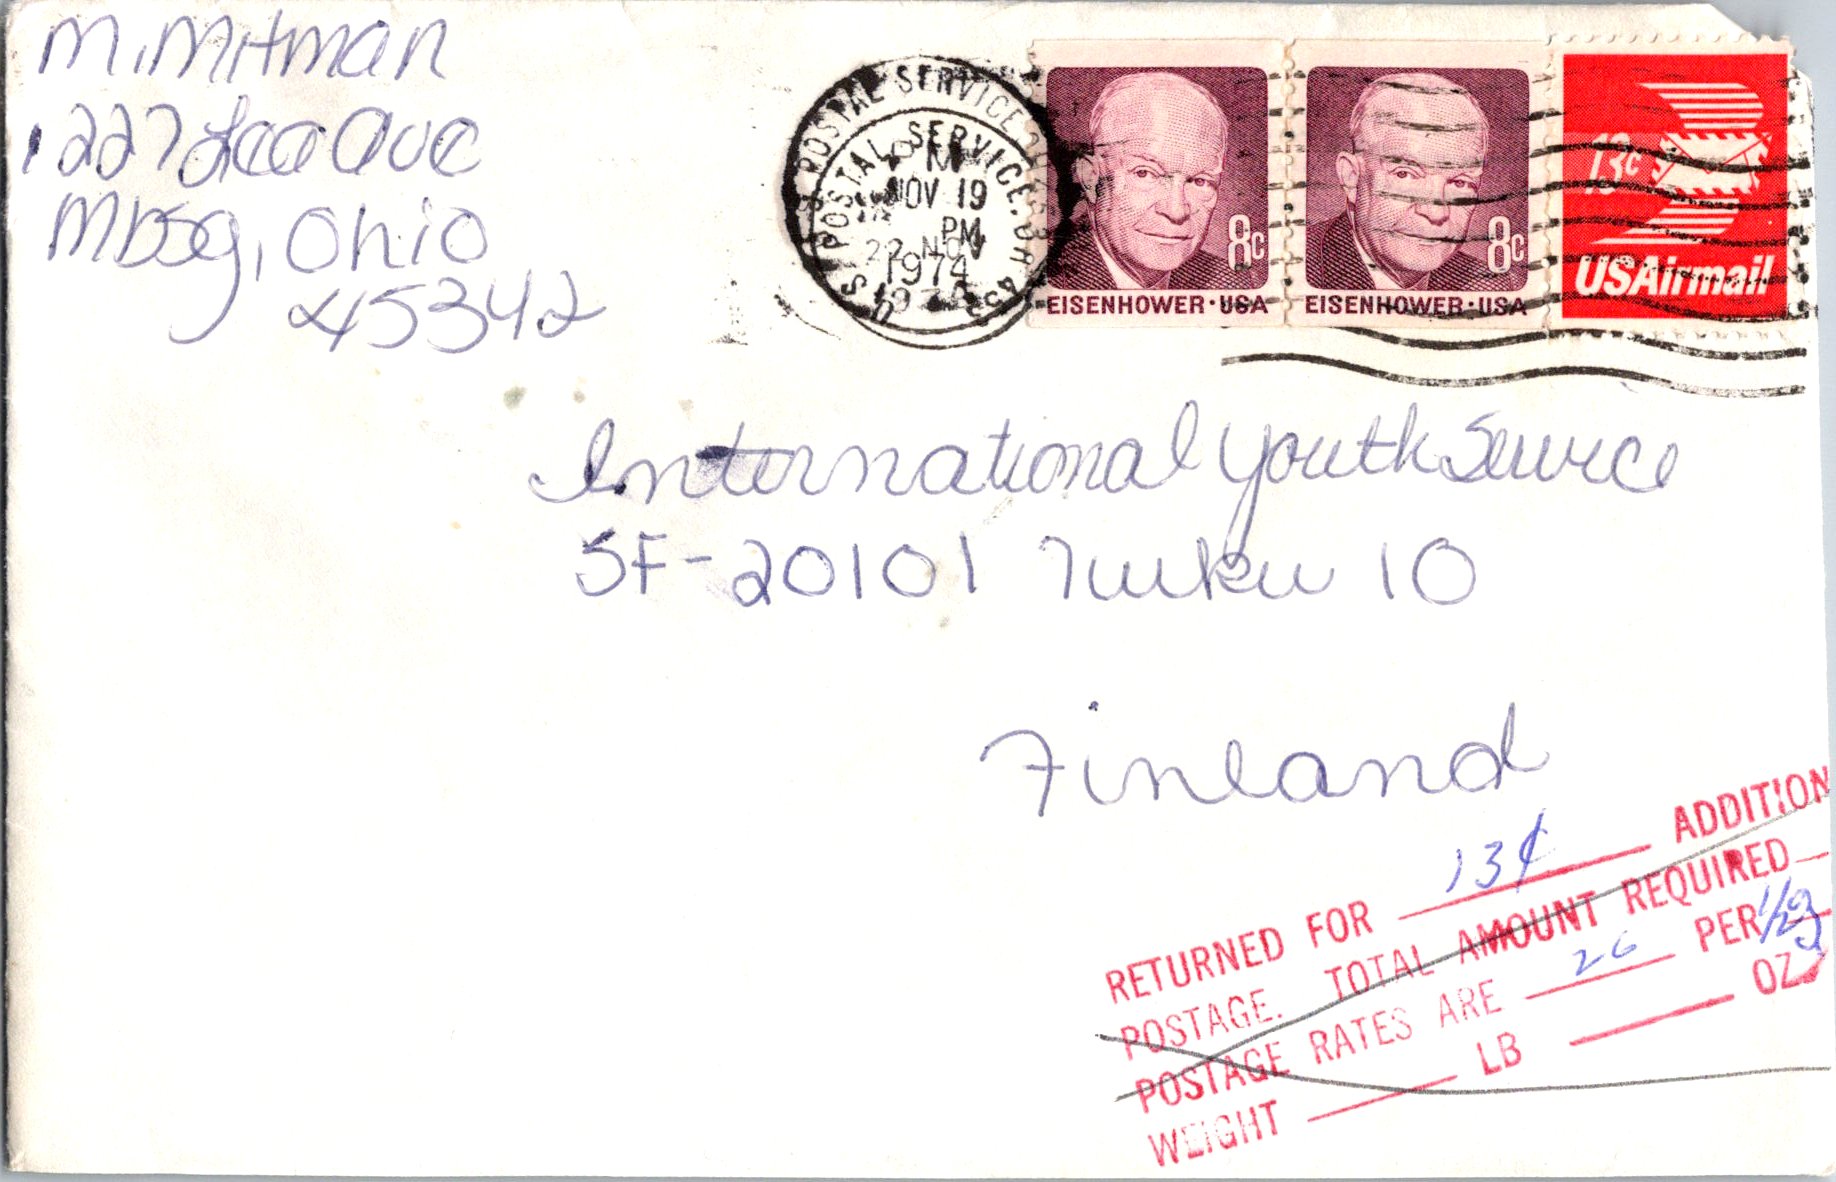 M. Mitman
1227 Lea Ave
Mbsg, Ohio
45342
U.S. POSTAL SERVICE. OH 453
NOV 19
PM
1974
22 NOV
8c
EISENHOWER · USA
8c
EISENHOWER · USA
13c
USAirmail
International Youth Service
SF-20101 Turku 10
Finland
RETURNED FOR 13¢ ADDITION
POSTAGE. TOTAL AMOUNT REQUIRED
POSTAGE RATES ARE 26 PER 1/2
WEIGHT LB OZ